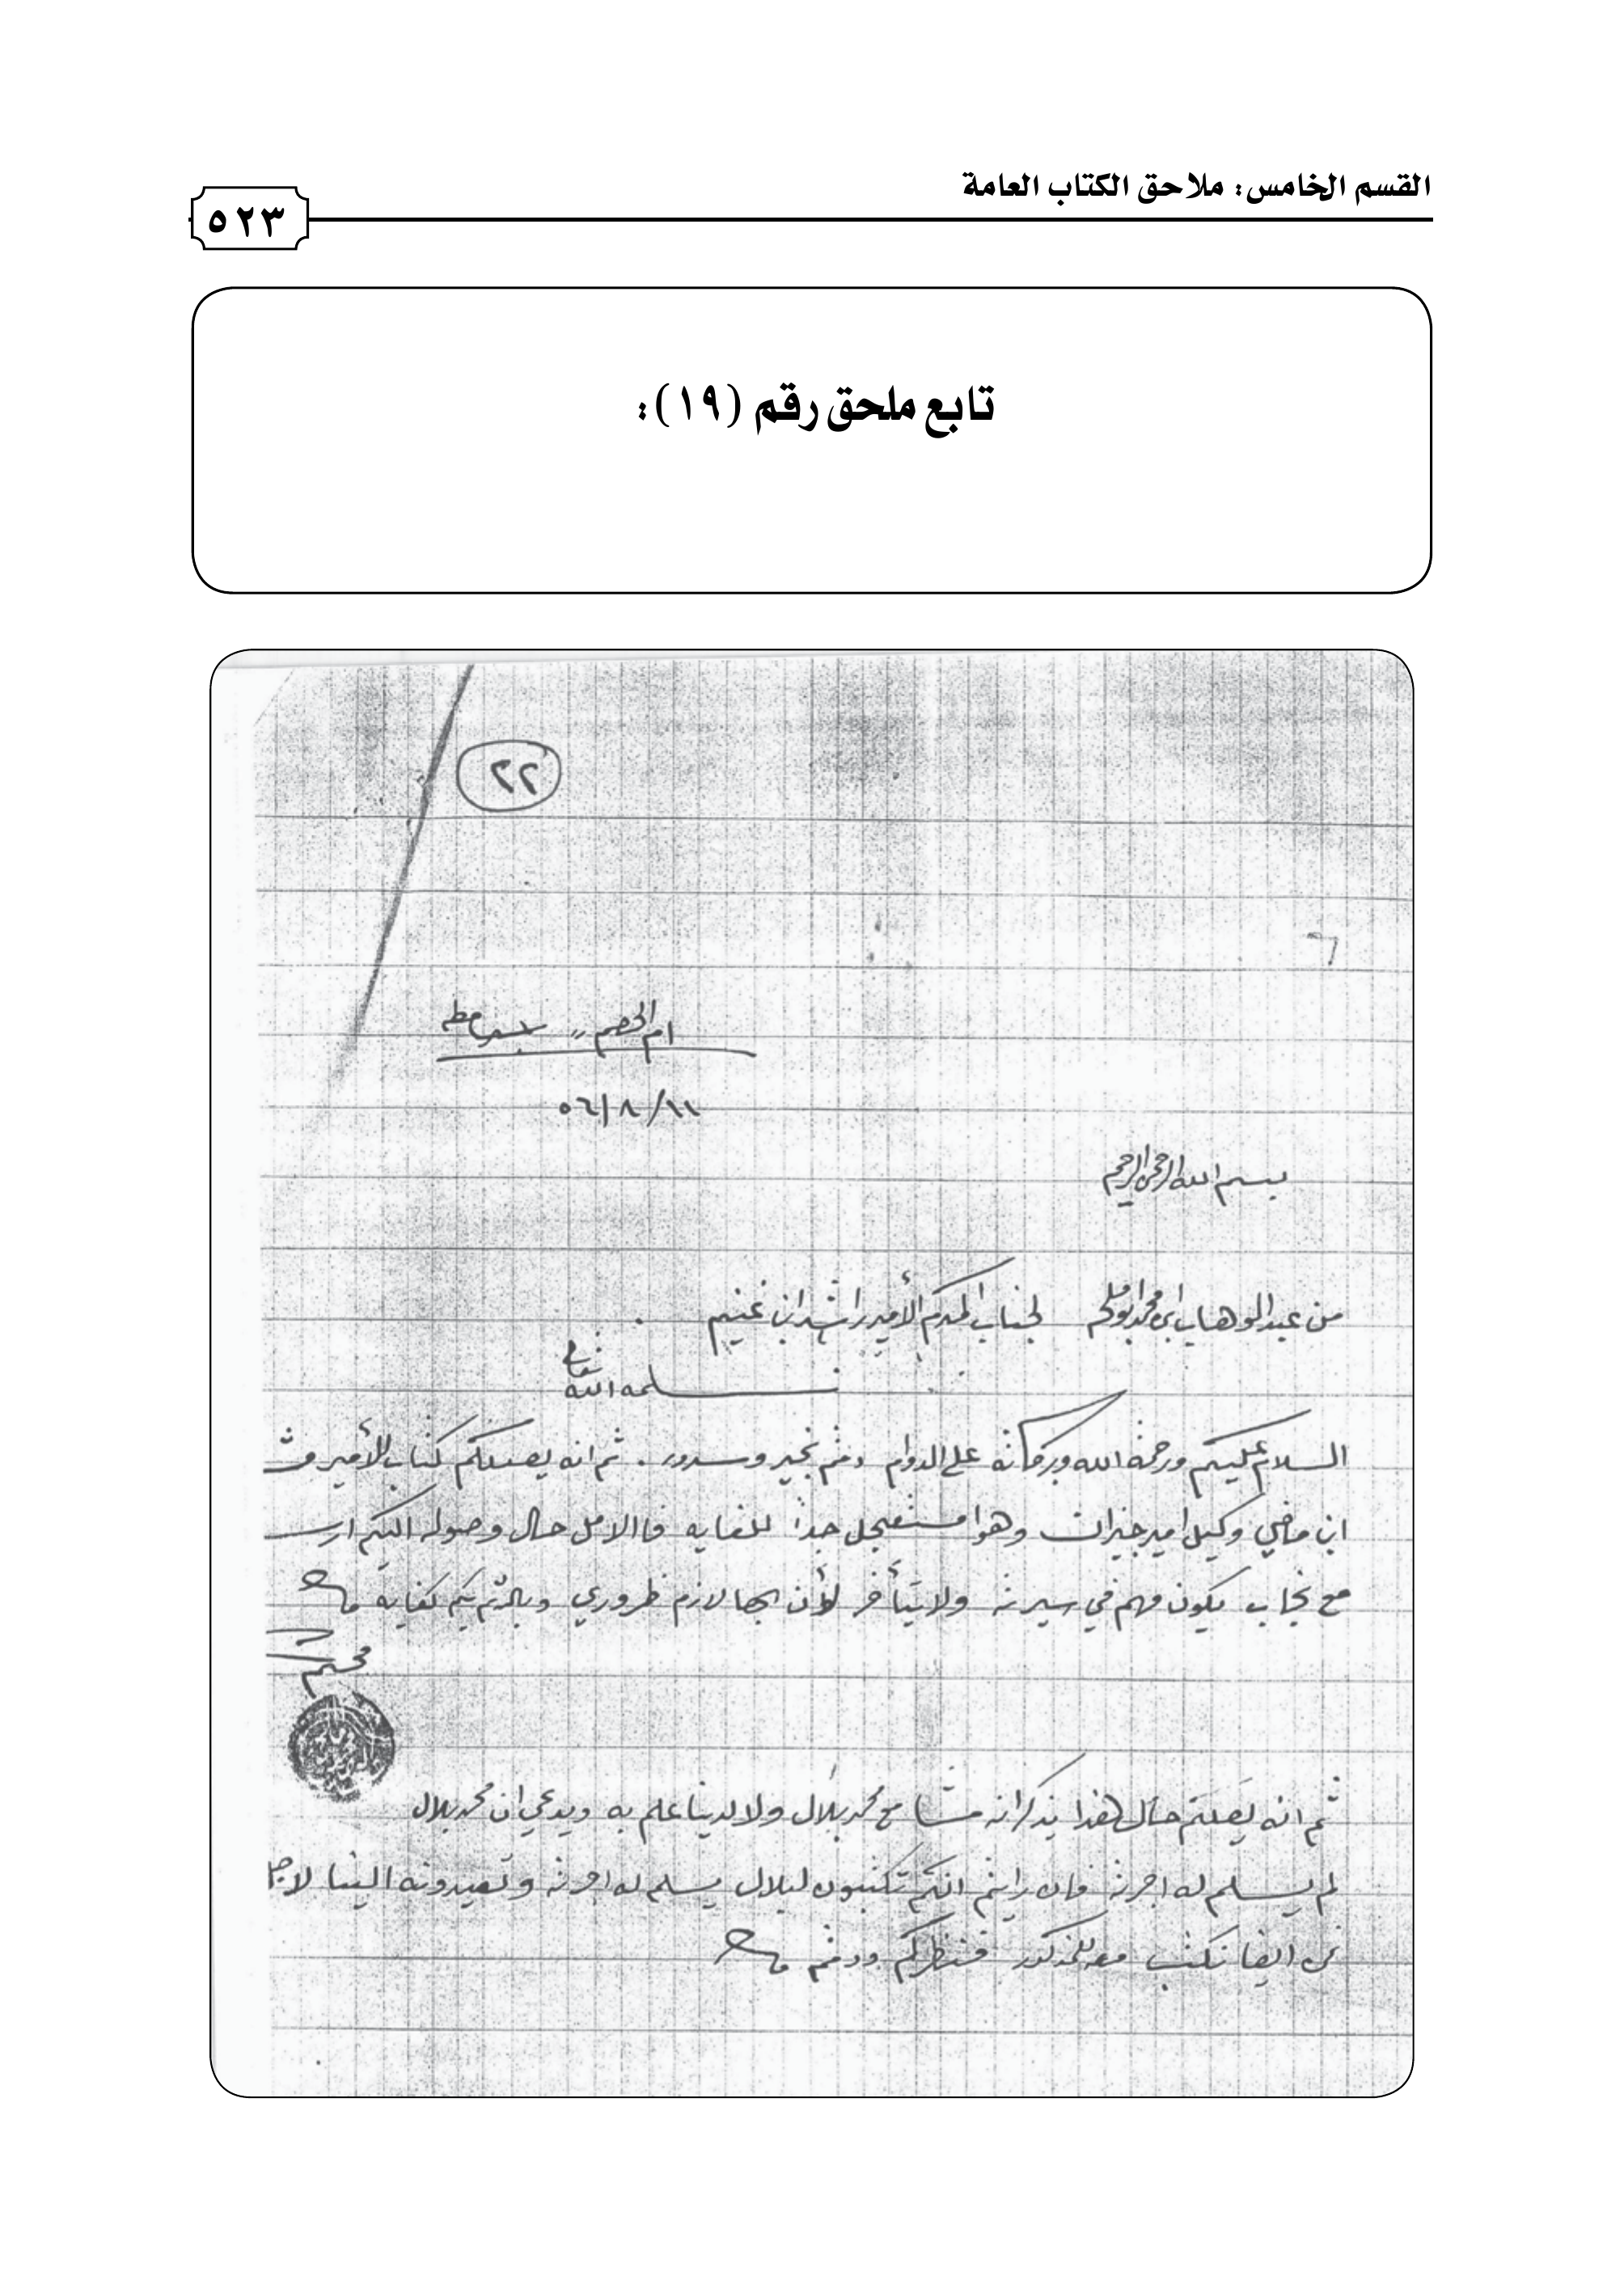 القسم الخامس: ملاحق الكتاب العامة
٥٢٣
تابع ملحق رقم (١٩):
٢٢
ام الخصم ,,
١١/٨/٥٦
بسم الله الرحمن الرحيم
من عبد الوهاب ابن محمد ابو ملحه لجناب المكرم الأمير راشد ابن غنيم
سلمه الله تعالى
السلام عليكم ورحمة الله وبركاته على الدوام دمتم بخير وسرور . ثم انه يصلكم كتاب الأمير
ابن ماضي وكيل امير جيزان وهوا مستعجل جداً للغايه فا الامل حال وصوله اليكم
مع نجاب يكون مهم في سيرته ولا يتأخر لأن لازم ظروري كفايه
محبكم
ثم انه يصلكم حال هذا يذكر انه مشا مع محمد بلال ولا لدينا علم به ويدعي ان محمد بلال
لم يسلم له اجرته فان رايتم انكم تكتبون لبلال يسلم له اجرته وتعيدونه الينا
نحن ايضا نكتب مع المذكور فنظركم ودمتم